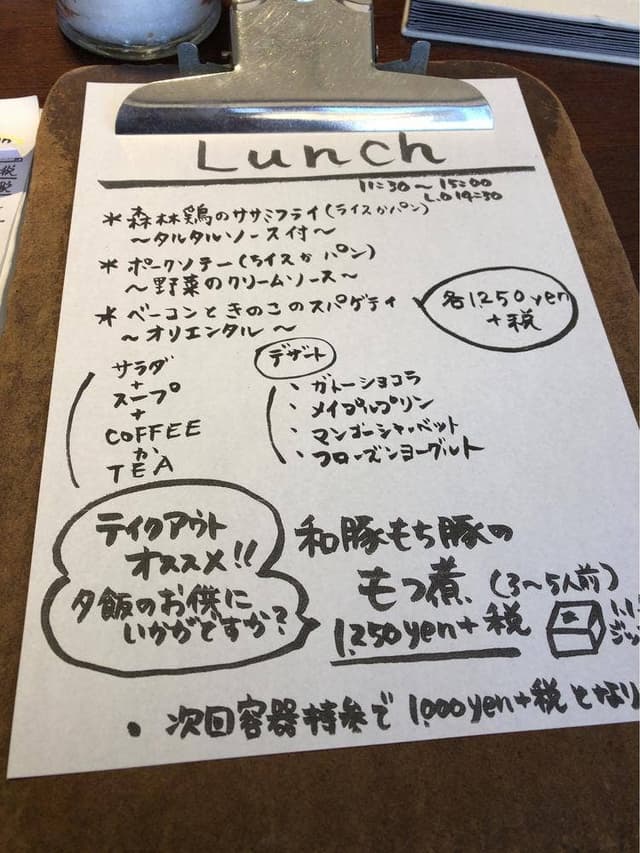 Lunch
11:30～15:00
L.O 14:30
＊森林鶏のササミフライ(ライスかパン)
～タルタルソース付～
＊ポークソテー(ライスかパン)
～野菜のクリームソース～
＊ベーコンときのこのスパゲティ
～オリエンタル～
各1,250yen
+税
サラダ
+
スープ
+
COFFEE
か
TEA
デザート
・ガトーショコラ
・メイプルプリン
・マンゴーシャーベット
・フローズンヨーグルト
テイクアウト
オススメ!!
夕飯のお供に
いかがですか?
和豚もち豚の
もつ煮(3～5人前)
1,250yen+税
・次回容器持参で1,000yen+税となり